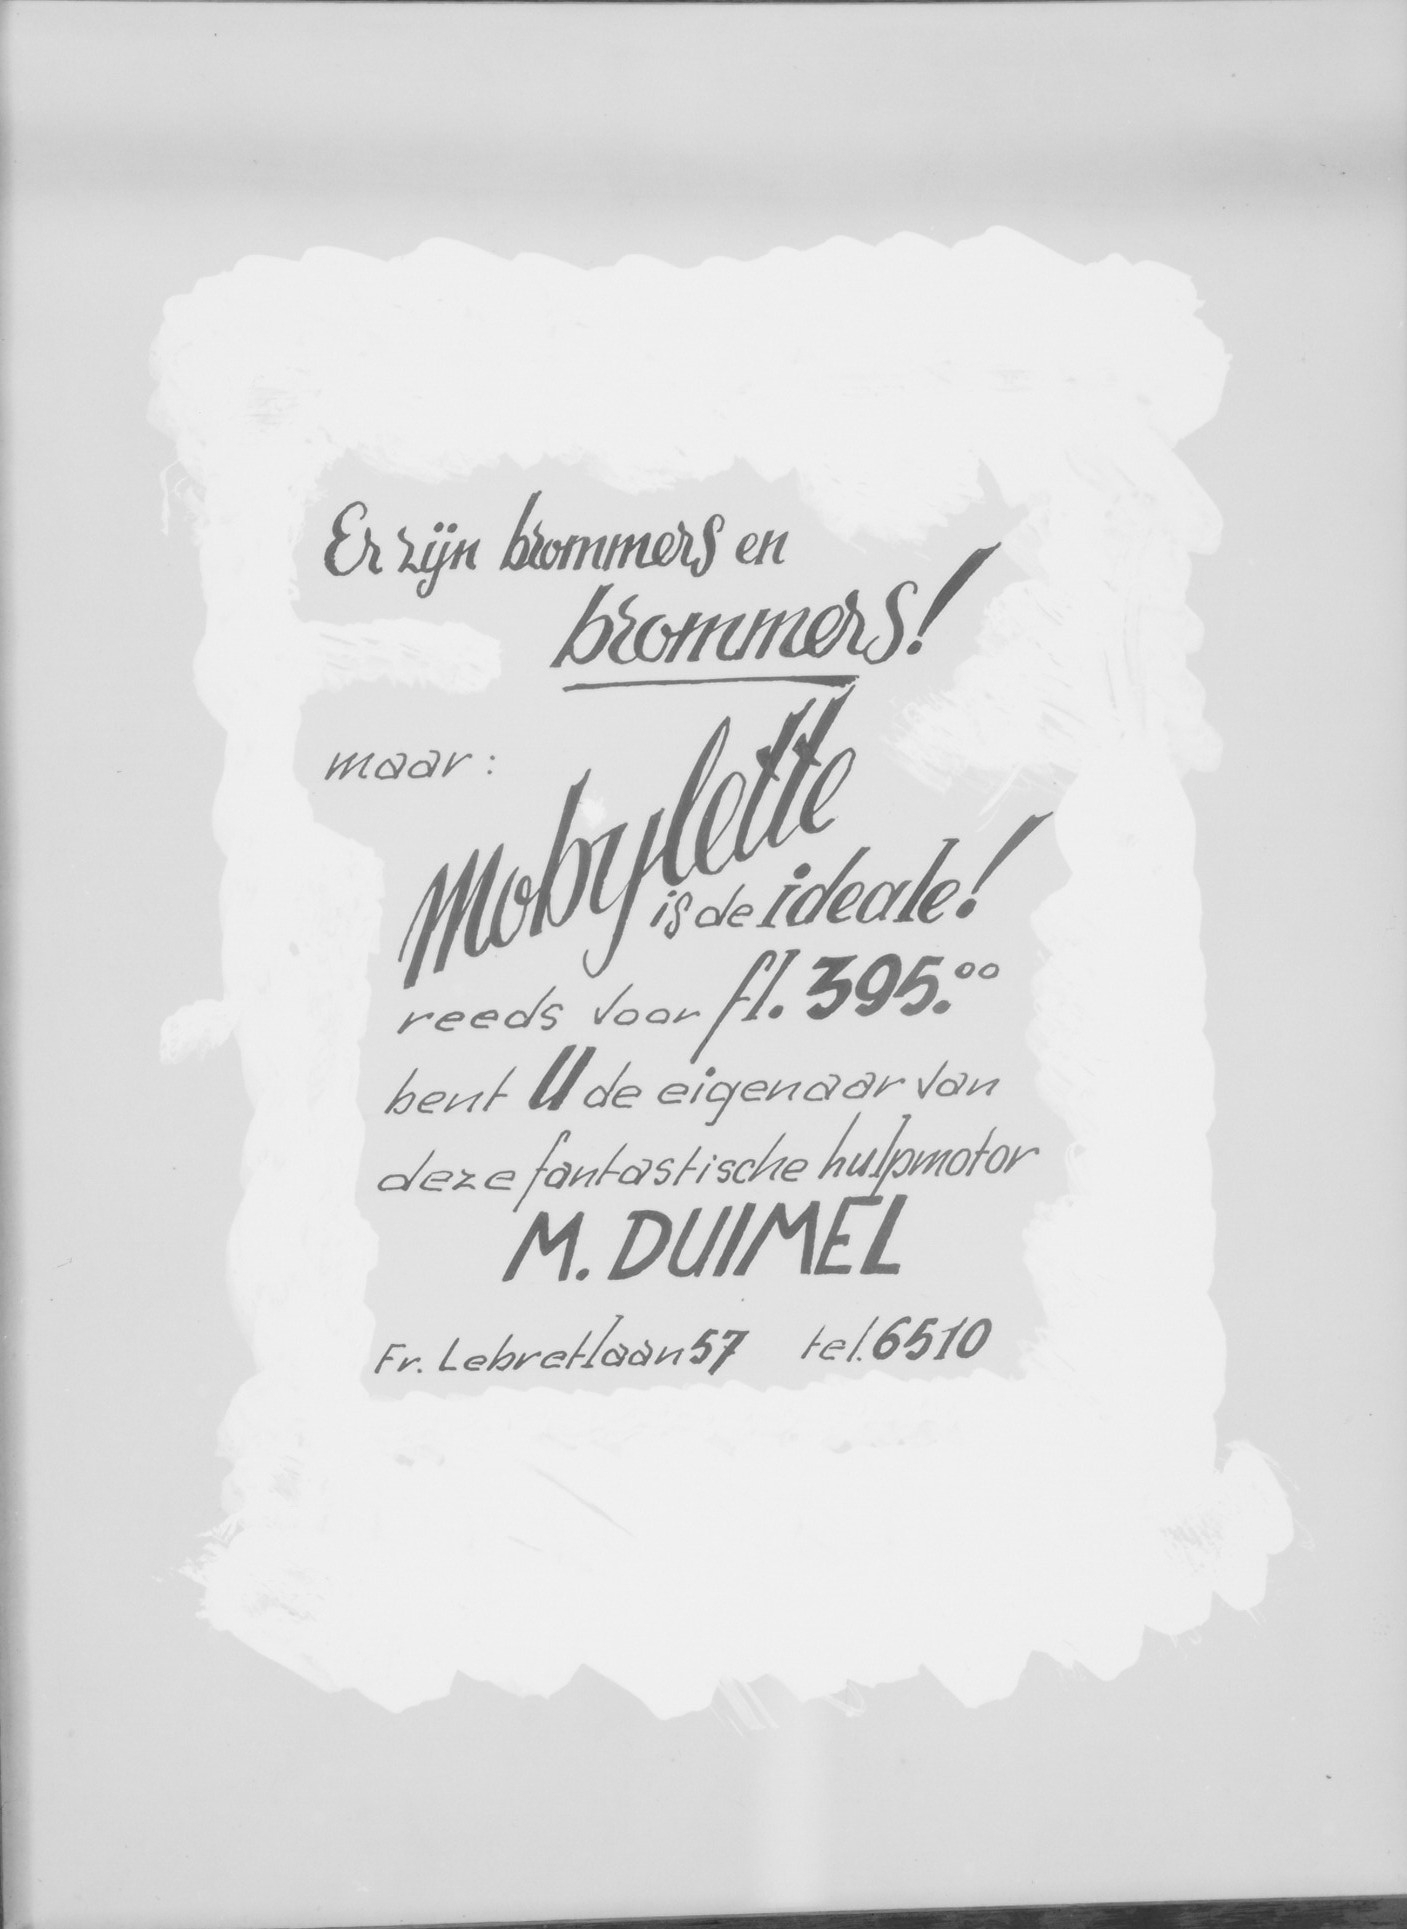 Er zijn brommers en
brommers!
maar:
Mobylette
is de ideale!
reeds voor fl. 395.00
bent U de eigenaar van
deze fantastische hulpmotor
M. DUIMEL
Fr. Lebretlaan 57 tel. 6510